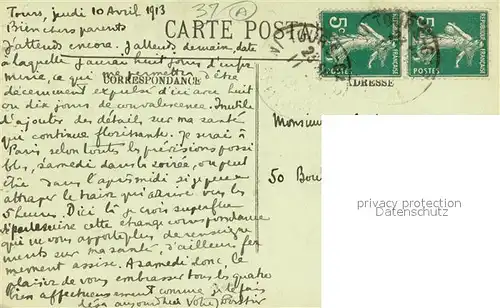 Tours, jeudi 10 Avril 1913
37 A
CARTE POSTALE
Bien chers parents
J'attends encore. J'attends demain, date
à laquelle j'aurai huit jours d'
ce qui me permettra d'être
CORRESPONDANCE
ADRESSE
décemment expulsé d'ici avec huit
ou dix jours de convalescence. Inutile
d'ajouter des détails sur ma santé
qui continue florissante. Je serai à
Paris selon toutes les prévisions possi
bles, samedi dans la soirée, ou peut
être dans l'après midi si je peux
attraper le train qui arrive vers les
5 heures. D'ici là je crois superflue
cette correspondance
qui ne vous apporte plus de renseigne
ments sur ma santé, d'ailleurs fer
mement assise. A samedi donc le
plaisir de vous embrasser tous les quatre
bien affectueusement comme je le fais
déjà aujourd'hui Votre
5c
POSTES
REPUBLIQUE FRANÇAISE
5c
POSTES
REPUBLIQUE FRANÇAISE
Monsieur
50 Bou
privacy protection
Datenschutz